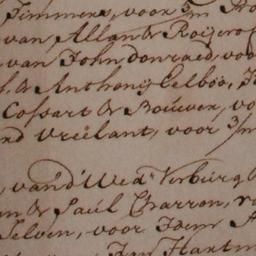 Timmers, voor 3/m
van Allan & Roijero
van John donraed, voo
& Anthonij Celbos, J
Cossart & Bouwer, vo
nd Vreelant, voor 3/m
, van d' Wed.e Verburg &
en & Paul Charron, v
Selven, voor Idem A
Jan Hartm